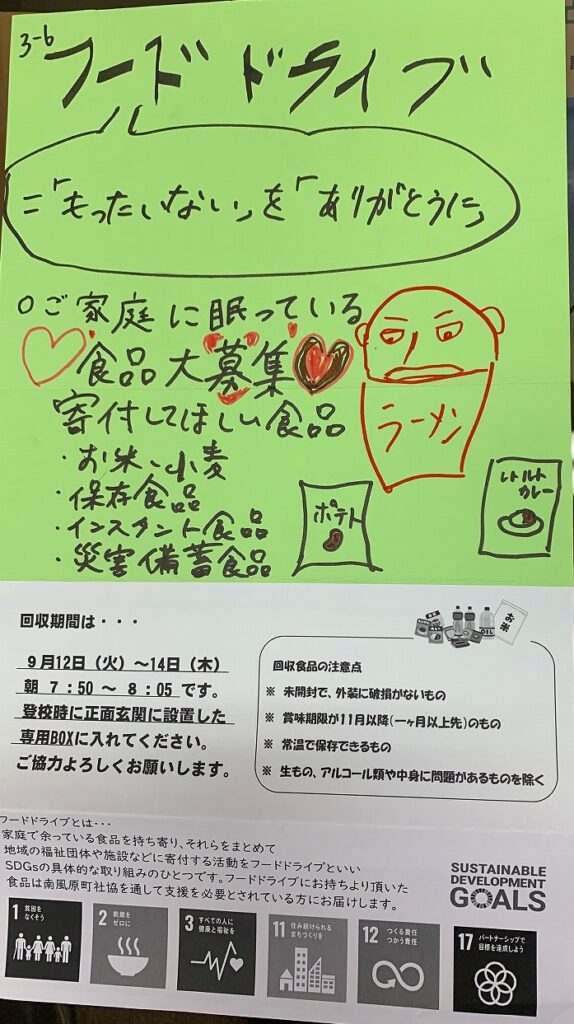 3-6
フードドライブ
=「もったいない」を「ありがとうに」
○ご家庭に眠っている
食品大募集
寄付してほしい食品
・お米、小麦
・保存食品
・インスタント食品
・災害備蓄食品
ラーメン
ポテト
レトルト
カレー
回収期間は・・・
9月12日（火）～14日（木）
朝 7：50 ～ 8：05 です。
登校時に正面玄関に設置した
専用BOXに入れてください。
ご協力よろしくお願いします。
お米
OIL
回収食品の注意点
※ 未開封で、外装に破損がないもの
※ 賞味期限が11月以降（一ヶ月以上先）のもの
※ 常温で保存できるもの
※ 生もの、アルコール類や中身に問題があるものを除く
フードドライブとは・・・
家庭で余っている食品を持ち寄り、それらをまとめて
地域の福祉団体や施設などに寄付する活動をフードドライブといい
SDGsの具体的な取り組みのひとつです。フードドライブにお持ちより頂いた
食品は南風原町社協を通して支援を必要とされている方にお届けします。
SUSTAINABLE
DEVELOPMENT
GOALS
1 貧困を
なくそう
2 飢餓を
ゼロに
3 すべての人に
健康と福祉を
11 住み続けられる
まちづくりを
12 つくる責任
つかう責任
17 パートナーシップで
目標を達成しよう